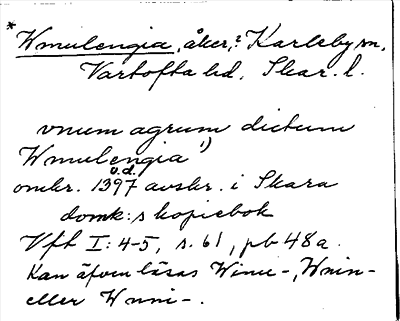 * Wmulengia, åker, ? Karleby sn,
Vartofta hd, Skar. l.
vnum agrum dictum
Wmulengia 1)
u.d.
omkr. 1397 avskr. i Skara
domk:s kopiebok
Vft I: 4-5, s. 61, pb 48a.
Kan äfven läsas Winu-, Wnin-
eller Wnni-.